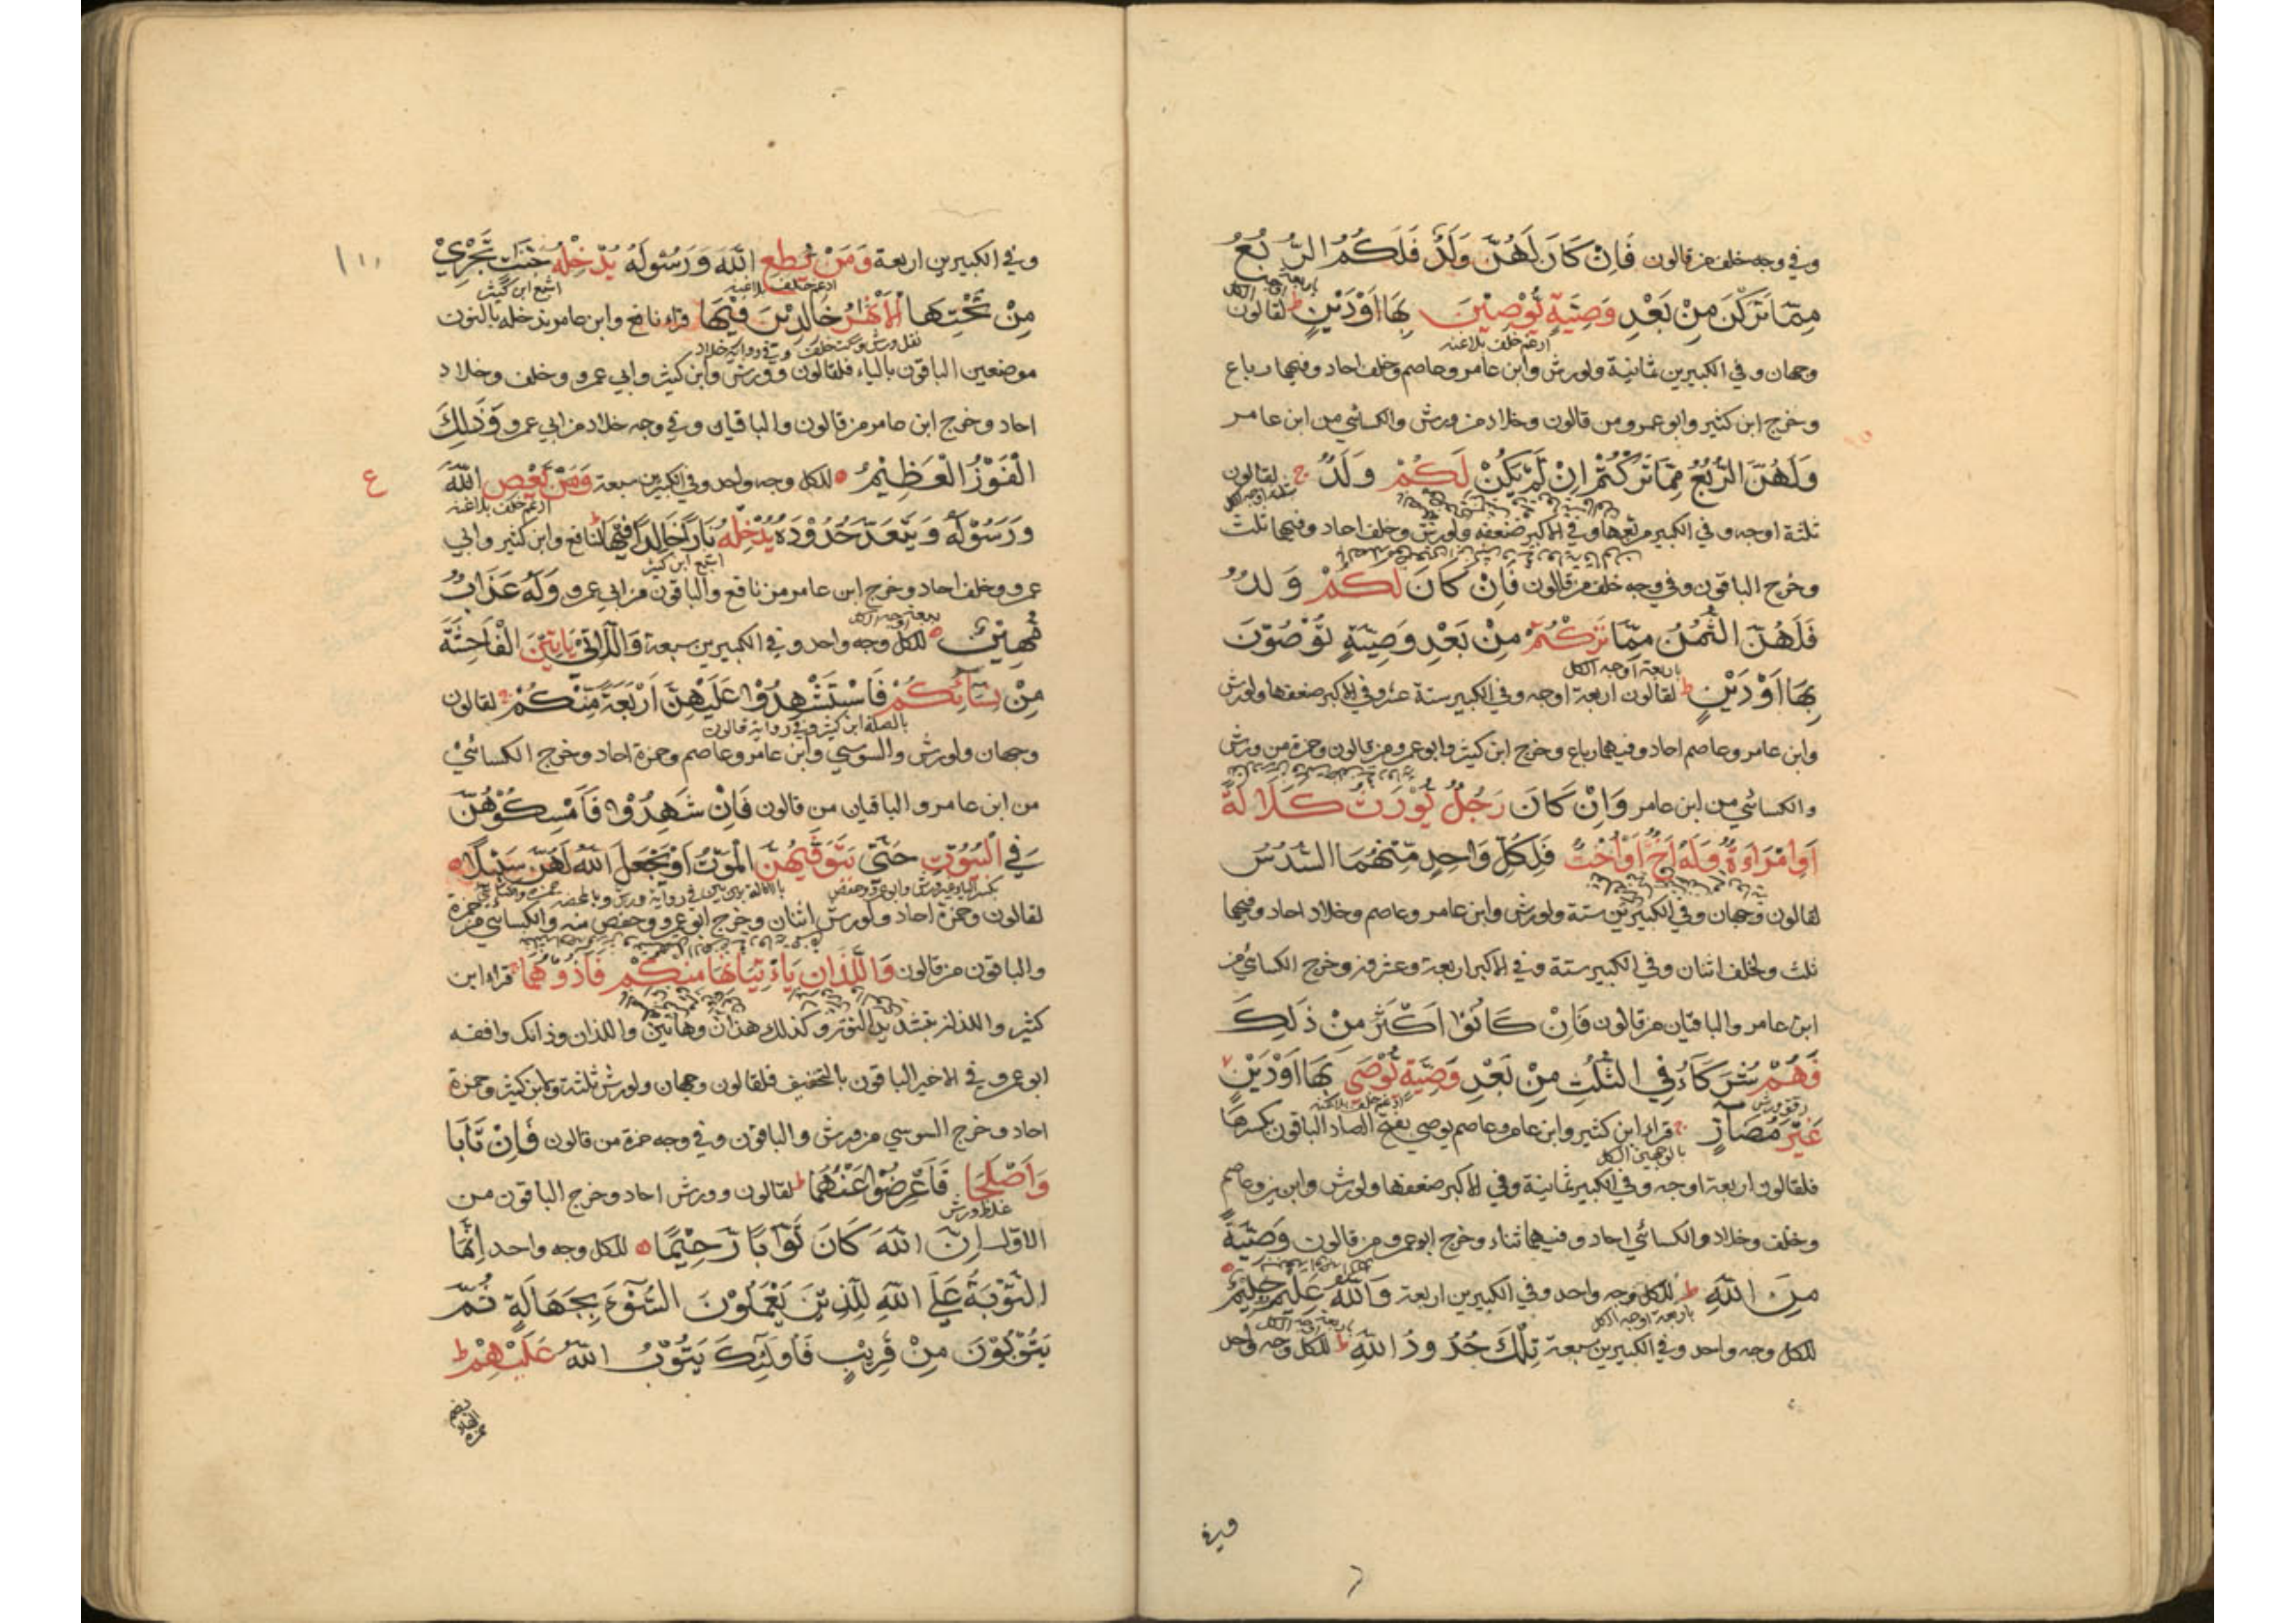 وفي وجه خلف من قالون فَاِنْ كَانَ لَهُنَّ وَلَدٌ فَلَكُمُ الرُّبُعُ
مِمَّا تَرَكْنَ مِنْ بَعْدِ وَصِيَّةٍ يُوْصِيْنَ بِهَا اَوْدَيْنٍ ط لقالون
ادغم خلف بلاغنه
وجهان وفي الكبيرين ثمانية ولورش وابن عامر وعاصم وخلف احاد وفيهما رباع
وخرج ابن كثير وابو عمرو من قالون وخلاد من ورش والكسائي من ابن عامر
وَلَهُنَّ الرُّبُعُ مِمَّا تَرَكْتُمْ اِنْ لَمْ يَكُنْ لَكُمْ وَلَدٌ ج لقالون
ثلثة اوجه وفي الكبير مربعها وفي الاكبر ضعفه ولورش وخلف احاد وفيهما ثلث
وخرج الباقون وفي وجه خلف من قالون فَاِنْ كَانَ لَكُمْ وَلَدٌ
فَلَهُنَّ الثُّمُنُ مِمَّا تَرَكْتُمْ مِنْ بَعْدِ وَصِيَّةٍ تُوْصُوْنَ
باربعة اوجه الكل
بِهَا اَوْ دَيْنٍ ط لقالون اربعة اوجه وفي الكبير ستة عشر وفي الاكبر ضعفها ولورش
وابن عامر وعاصم احاد وفيهما رباع وخرج ابن كثير وابو عمرو من قالون وحمزة من ورش
والكسائي من ابن عامر وَاِنْ كَانَ رَجُلٌ يُوْرَثُ كَلَالَةً
اَوِ امْرَاَةٌ وَلَهُ اَخٌ اَوْ اُخْتٌ فَلِكُلِّ وَاحِدٍ مِّنْهُمَا السُّدُسُ
لقالون وجهان وفي الكبيرين ستة ولورش وابن عامر وعاصم وخلاد احاد وفيهما
ثلث ولخلف اثنان وفي الكبير ستة وفي الاكبر اربعة وعشرون وخرج الكسائي من
ابن عامر والباقيان من قالون فَاِنْ كَانُوْا اَكْثَرَ مِنْ ذٰلِكَ
فَهُمْ شُرَكَاءُ فِي الثُّلُثِ مِنْ بَعْدِ وَصِيَّةٍ يُوْصٰى بِهَا اَوْدَيْنٍ
رقق ورش ادغم خلف بلاغنه
غَيْرَ مُضَآرٍّ ج قراء ابن كثير وابن عامر وعاصم يوصي بفتح الصاد الباقون بكسرها
بالوجهين الكل
فلقالون اربعة اوجه وفي الكبير ثمانية وفي الاكبر ضعفها ولورش وعاصم
وخلف وخلاد والكسائي احاد وفيهما ثناء وخرج ابو عمرو من قالون وَصِيَّةً
مِنَ اللّٰهِ ط للكل وجه واحد وفي الكبيرين اربعة وَاللّٰهُ عَلِيْمٌ حَلِيْمٌ
باربعة اوجه الكل
للكل وجه واحد وفي الكبيرين سبعة تِلْكَ حُدُودُ اللّٰهِ ط للكل وجه واحد
وفي
وفي الكبيرين اربعة وَمَنْ يُطِعِ اللّٰهَ وَرَسُوْلَهُ يُدْخِلْهُ جَنّٰتٍ تَجْرِيْ
ادغم خلف بلاغنه اشبع ابن كثير
مِنْ تَحْتِهَا الْاَنْهٰرُ خَالِدِيْنَ فِيْهَا قراء نافع وابن عامر ندخله بالنون
نقل ورش وسكت خلف وفي رواية خلاد
موضعين الباقون بالياء فلقالون وورش وابن كثير وابي عمرو وخلف وخلاد
احاد وخرج ابن عامر من قالون والباقيان وفي وجه خلاد من ابي عمرو وَذٰلِكَ
الْفَوْزُ الْعَظِيْمُ للكل وجه واحد وفي الكبيرين سبعة وَمَنْ يَعْصِ اللّٰهَ
ع
ادغم خلف بلاغنه
وَرَسُوْلَهُ وَيَتَعَدَّ حُدُوْدَهُ يُدْخِلْهُ نَارًا خَالِدًا فِيْهَا لنافع وابن كثير وابي
اشبع ابن كثير
عمرو وخلف احاد وخرج ابن عامر من نافع والباقون من ابي عمرو وَلَهُ عَذَابٌ
مُهِيْنٌ للكل وجه واحد وفي الكبيرين سبعة وَالّٰتِيْ يَاْتِيْنَ الْفَاحِشَةَ
مِنْ نِسَآئِكُمْ فَاسْتَشْهِدُوْا عَلَيْهِنَّ اَرْبَعَةً مِّنْكُمْ ج لقالون
بالصلة ابن كثير وفي رواية قالون
وجهان ولورش والسوسي وابن عامر وعاصم وحمزة احاد وخرج الكسائي
من ابن عامر والباقيان من قالون فَاِنْ شَهِدُوْا فَاَمْسِكُوْهُنَّ
فِي الْبُيُوْتِ حَتّٰى يَتَوَفّٰيهُنَّ الْمَوْتُ اَوْ يَجْعَلَ اللّٰهُ لَهُنَّ سَبِيْلًا
لقالون وحمزة احاد ولورش اثنان وخرج ابو عمرو وحفص منه والكسائي من حمزة
والباقون من قالون وَالَّذَانِ يَاْتِيَانِهَا مِنْكُمْ فَاٰذُوْهُمَا ج قراء ابن
كثير واللذان بتشديد النون وكذلك هذان وهاتين واللذان وذانك وافقه
ابو عمرو في الاخير الباقون بالتخفيف فلقالون وجهان ولورش ثلثة ولابن كثير وحمزة
احاد وخرج السوسي من ورش والباقون وفي وجه حمزة من قالون فَاِنْ تَابَا
وَاَصْلَحَا فَاَعْرِضُوْا عَنْهُمَا ط لقالون وورش احاد وخرج الباقون من
غلظ ورش
الاوّل اِنَّ اللّٰهَ كَانَ تَوَّابًا رَّحِيْمًا للكل وجه واحد اِنَّمَا
التَّوْبَةُ عَلَى اللّٰهِ لِلَّذِيْنَ يَعْمَلُوْنَ السُّوْءَ بِجَهَالَةٍ ثُمَّ
يَتُوْبُوْنَ مِنْ قَرِيْبٍ فَاُولٰئِكَ يَتُوْبُ اللّٰهُ عَلَيْهِمْ ط